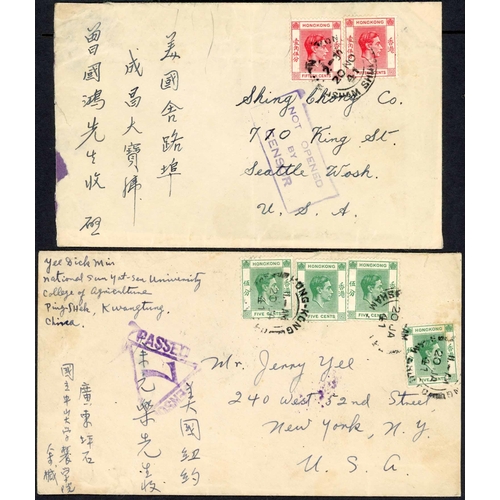 美國舍路埠
成昌大寶號
曾國鴻先生收
HONGKONG
HONGKONG
Shing Chong Co.
710 King St.
Seattle Wash.
U. S. A.
NOT OPENED
BY
CENSOR
Yee Dick Min
National Sun Yat-Sen University
College of Agriculture
Pingshek, Kwangtung,
China
HONGKONG
HONGKONG
HONGKONG
伍分
香港
FIVE CENTS
FIVE CENTS
FIVE CENTS
HONG-KONG
PASSED
7
Mr. Jerry Yee
240 West 52nd Street
New York, N.Y.
U. S. A.
美國紐約
先生收
廣東坪石
國立中山大學農學院